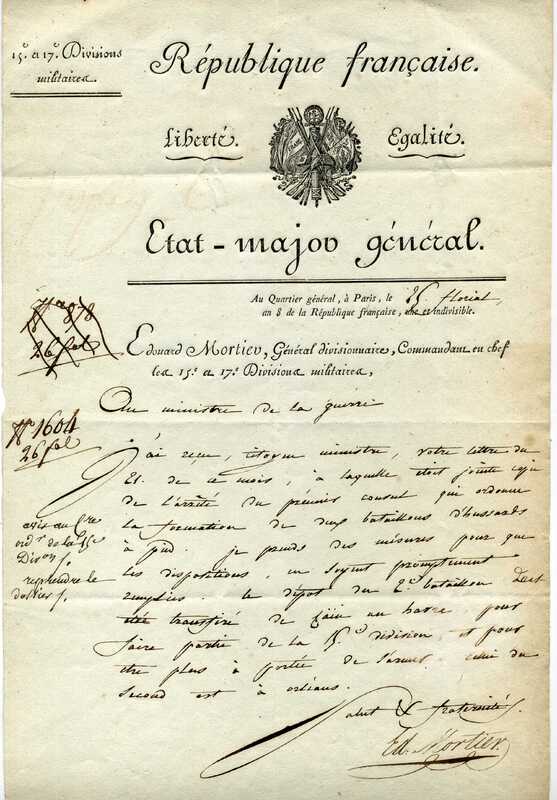 15.e et 17.e Divisions
militaires.
République française.
Liberté. Egalité.
Etat-major général.
Au Quartier général, à Paris, le 25. floréal
an 8 de la République française, une et indivisible.
Edouard Mortier, Général divisionnaire, Commandant en chef
les 15.e et 17.e Divisions militaires,
Au ministre de la guerre
N° 1604
26 fal
J'ai reçu, citoyen ministre, votre lettre du
21. de ce mois, à laquelle étoit jointe copie
de l'arrêté du premier consul qui ordonne
la formation de deux bataillons d'hussards
à pied. je prends des mésures pour que
les dispositions, en soyent promptement
remplies. le dépôt du 2.e bataillon
transféré de au havre pour
faire partie de la 15.e division, et pour
être plus à portée de celui du
second est à orléans.
avis au
ord.r de la 15.e
Div.on
reprendre le
dossier
Salut & fraternité.
Ed. Mortier